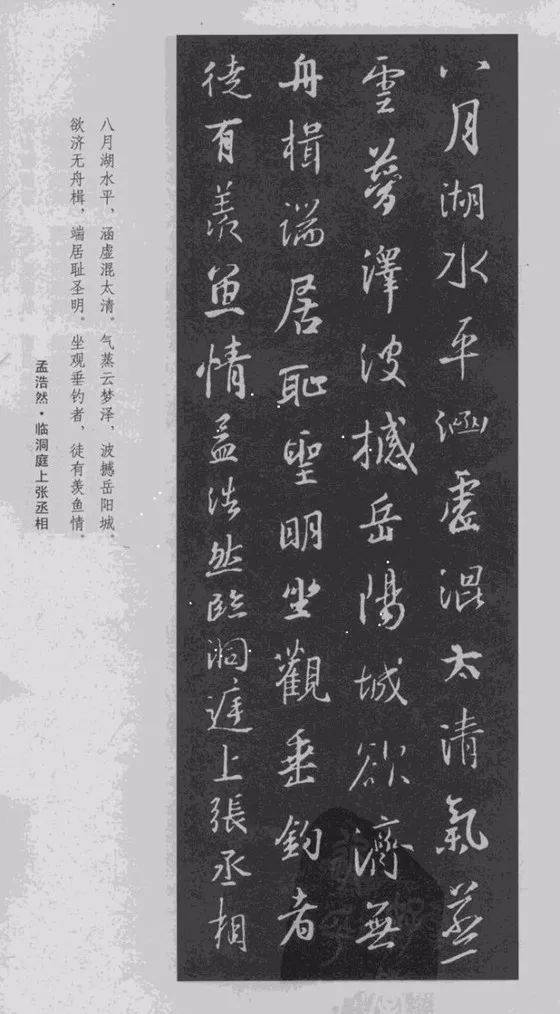 八月湖水平涵虚混太清氣蒸
雲夢澤波撼岳陽城欲濟無
舟楫端居恥聖明坐觀垂釣者
徒有羨魚情孟浩然臨洞庭上張丞相
八月湖水平，涵虚混太清。气蒸云梦泽，波撼岳阳城。
欲济无舟楫，端居耻圣明。坐观垂钓者，徒有羡鱼情。
孟浩然·临洞庭上张丞相